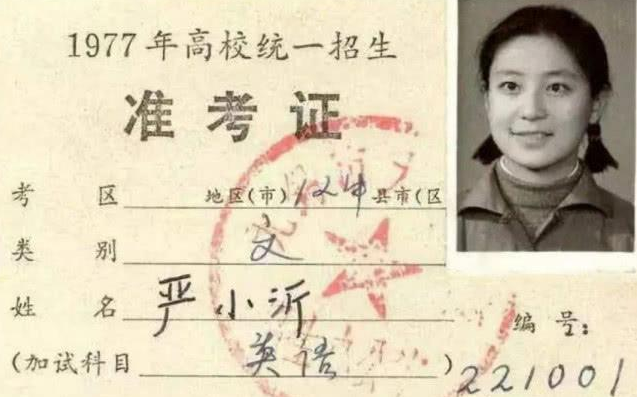 1977年高校统一招生
准考证
考 区 地区(市) 县市(区
类 别 文
姓 名 严小沂
编 号:
(加试科目 英语 ) 221001